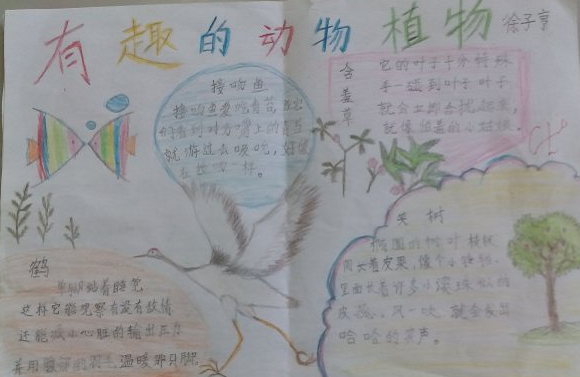 有趣的动物植物
徐子亨
接吻鱼
接吻鱼爱吃青苔,当它
们看到对方身上的青苔
就游过去吸吮,好像
在接吻一样。
含羞草
它的叶子十分特殊
手一碰到叶子叶子
就会立即合拢起来,
就像怕羞的小姑娘。
鹤
单脚站着睡觉
这样它能观察有没有敌情
还能减小心脏的输出压力
并用腹部的羽毛温暖那只脚
笑树
椭圆的树叶
间长着皮果,像个小铃铛,
里面长着许多小滚珠似的
皮蕊,风一吹,就会发出
哈哈的笑声。